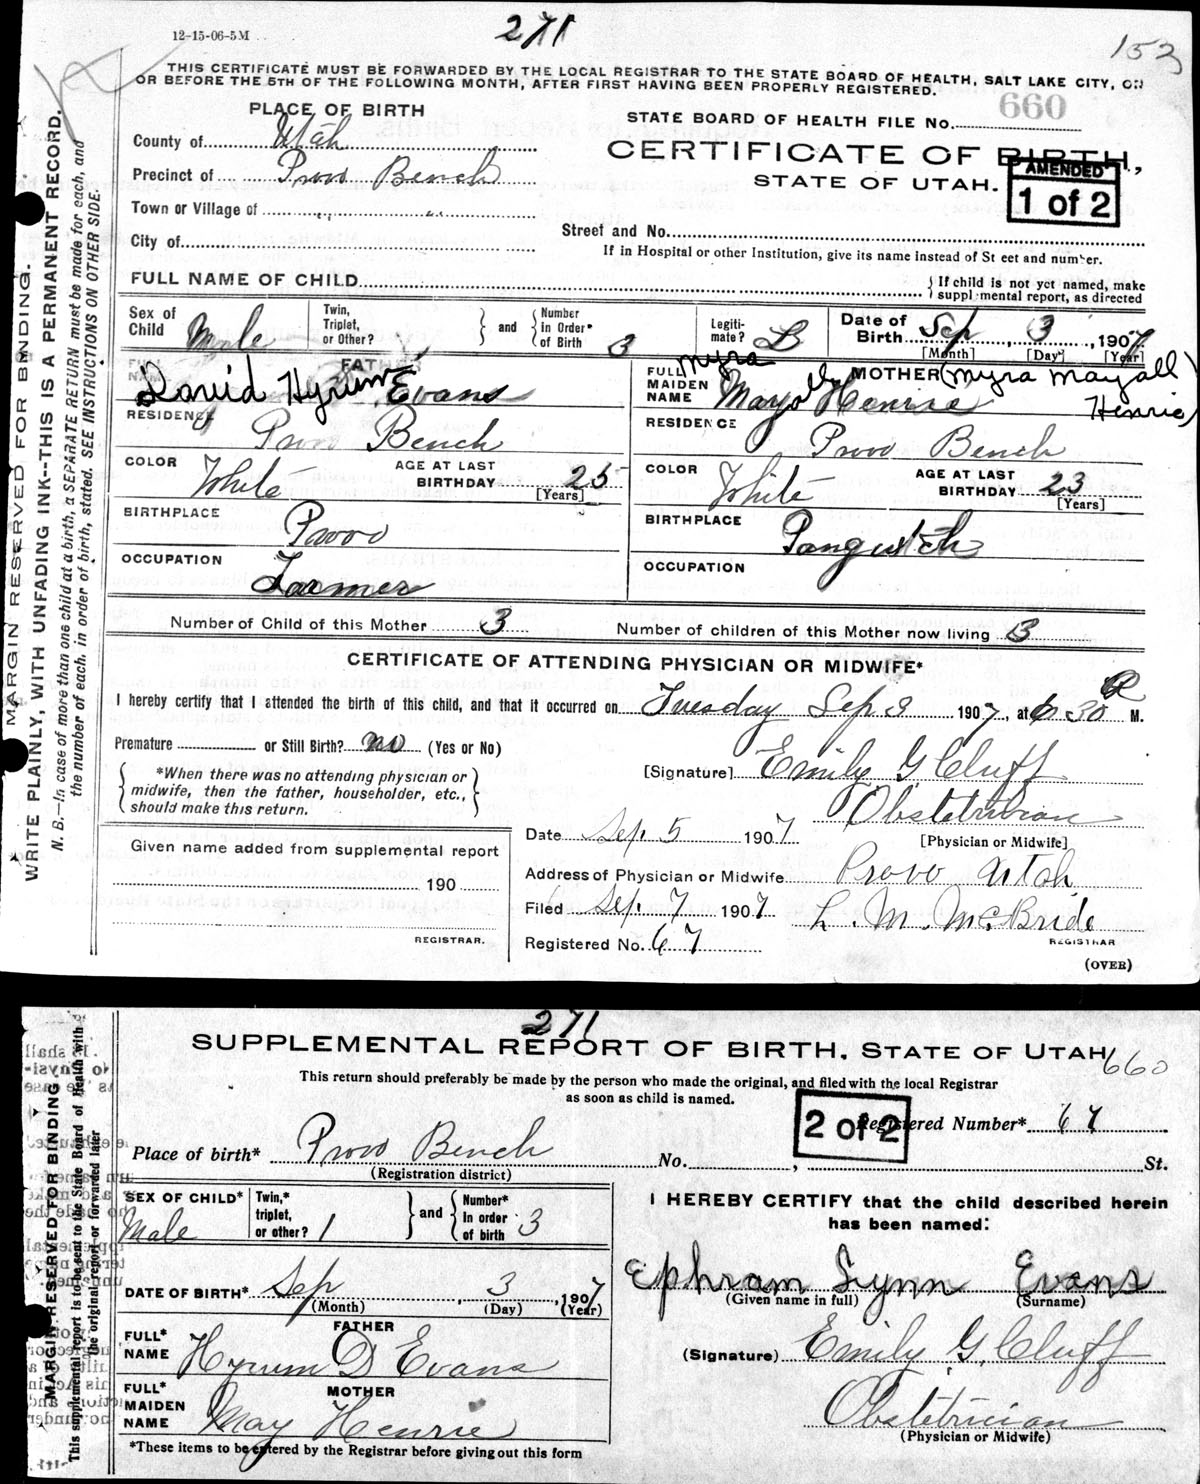 12-15-06-5M
271
153
THIS CERTIFICATE MUST BE FORWARDED BY THE LOCAL REGISTRAR TO THE STATE BOARD OF HEALTH, SALT LAKE CITY, ON
OR BEFORE THE 5TH OF THE FOLLOWING MONTH, AFTER FIRST HAVING BEEN PROPERLY REGISTERED.
PLACE OF BIRTH
County of Utah
Precinct of Provo Bench
Town or Village of
City of
STATE BOARD OF HEALTH FILE No. 660
CERTIFICATE OF BIRTH,
STATE OF UTAH.
AMENDED
1 of 2
Street and No.
If in Hospital or other Institution, give its name instead of Street and number.
FULL NAME OF CHILD
If child is not yet named, make
supplemental report, as directed
Sex of Child Male
Twin, Triplet, or Other?
and
Number in Order* of Birth 3
Legiti-mate? L
Date of Birth Sep 3, 1907
[Month] [Day] [Year]
FULL NAME
FATHER
David Hyrum Evans
RESIDENCE
Provo Bench
COLOR White
AGE AT LAST BIRTHDAY 25
[Years]
BIRTHPLACE
Provo
OCCUPATION
Farmer
FULL MAIDEN NAME
MOTHER (Myra Mayall Henrie)
Myra
May Henrie
RESIDENCE
Provo Bench
COLOR White
AGE AT LAST BIRTHDAY 23
[Years]
BIRTHPLACE
Panguitch
OCCUPATION
Number of Child of this Mother 3
Number of children of this Mother now living 3
CERTIFICATE OF ATTENDING PHYSICIAN OR MIDWIFE*
I hereby certify that I attended the birth of this child, and that it occurred on Tuesday Sep 3 1907, at 6 30 P M.
Premature or Still Birth? no (Yes or No)
*When there was no attending physician or
midwife, then the father, householder, etc.,
should make this return.
[Signature] Emily G Cluff
Obstetrician
[Physician or Midwife]
Date Sep. 5 1907
Address of Physician or Midwife Provo Utah
Filed Sep. 7 1907
L. M. McBride
REGISTRAR
Registered No. 67
(OVER)
Given name added from supplemental report
190
REGISTRAR.
MARGIN RESERVED FOR BINDING.
WRITE PLAINLY, WITH UNFADING INK--THIS IS A PERMANENT RECORD.
N. B.--In case of more than one child at a birth, a SEPARATE RETURN must be made for each, and
the number of each, in order of birth, stated. SEE INSTRUCTIONS ON OTHER SIDE.
271
SUPPLEMENTAL REPORT OF BIRTH, STATE OF UTAH
660
This return should preferably be made by the person who made the original, and filed with the local Registrar
as soon as child is named.
2 of 2
Registered Number* 67
Place of birth* Provo Bench
(Registration district)
No. , St.
SEX OF CHILD* Male
Twin,* triplet, or other? 1
and
Number* In order of birth 3
DATE OF BIRTH* Sep 3, 1907
(Month) (Day) (Year)
FULL* NAME
FATHER
Hyrum D Evans
FULL* MAIDEN NAME
MOTHER
May Henrie
*These items to be entered by the Registrar before giving out this form
I HEREBY CERTIFY that the child described herein
has been named:
Ephram Lynn Evans
(Given name in full) (Surname)
(Signature) Emily G. Cluff
Obstetrician
(Physician or Midwife)
MARGIN RESERVED FOR BINDING
This supplemental report is to be sent to the State Board of Health with
the original report or forwarded later